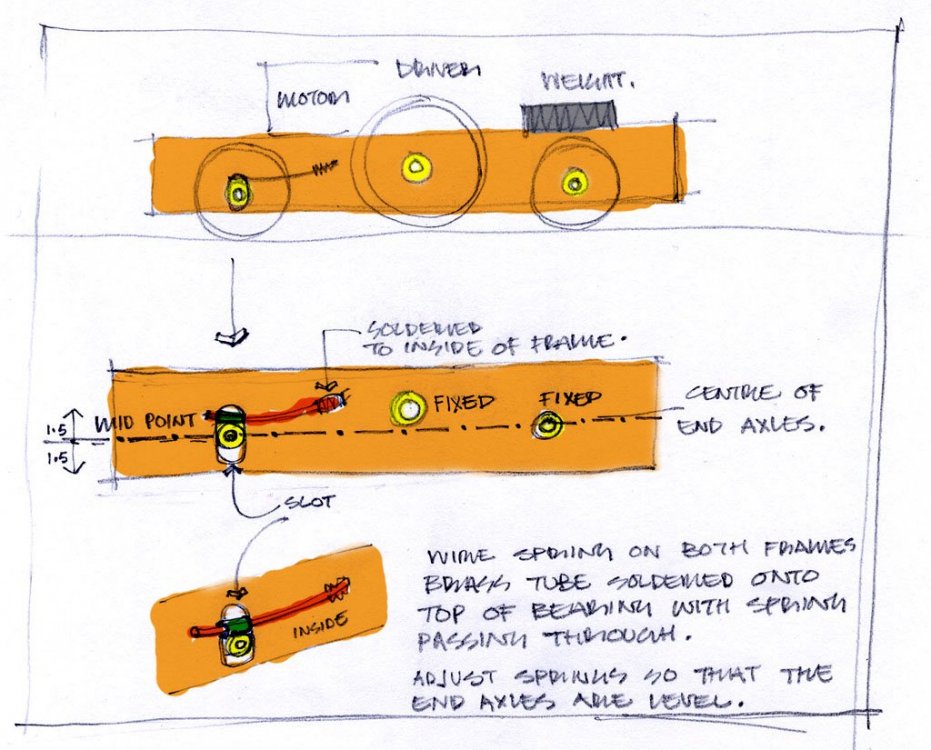 DRIVER
WEIGHT.
MOTOR
SOLDERED
TO INSIDE OF FRAME.
FIXED
FIXED
CENTRE OF
END AXLES.
MID POINT
1.5
1.5
SLOT
INSIDE
WIRE SPRING ON BOTH FRAMES
BRASS TUBE SOLDERED ONTO
TOP OF BEARING WITH SPRING
PASSING THROUGH.
ADJUST SPRINGS SO THAT THE
END AXLES ARE LEVEL.